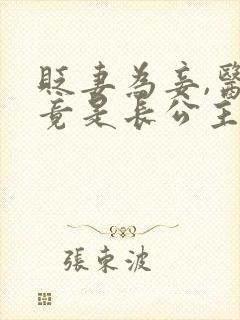 貶妻為妾,醫
竟是長公主
張東波